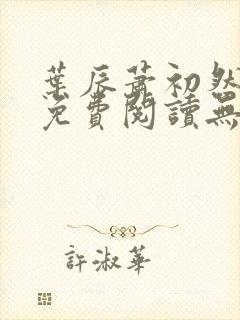 葉辰蕭初然
免費閱讀無
許淑華